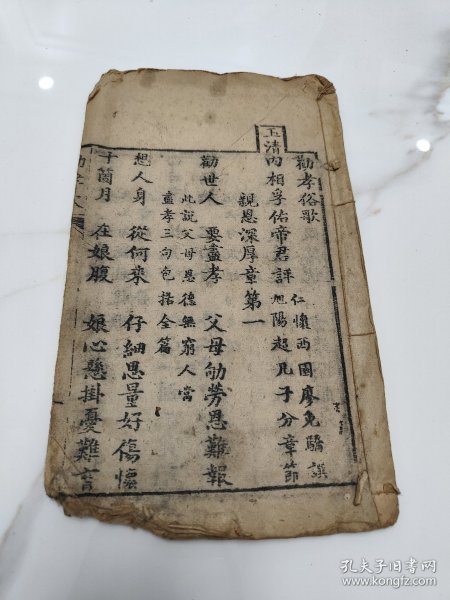 勸孝俗歌
仁懷西園廖免驕譔
玉清內相孚佑帝君評
旭陽超凡子分章節
親恩深厚章第一
勸世人 要盡孝 父母劬勞恩難報
此說父母恩德無窮人當
盡孝三句包括全篇
想人身 從何來 仔細思量好傷懷
十箇月 在娘腹 娘心懸掛憂難言
孔夫子旧书网
www.kongfz.com